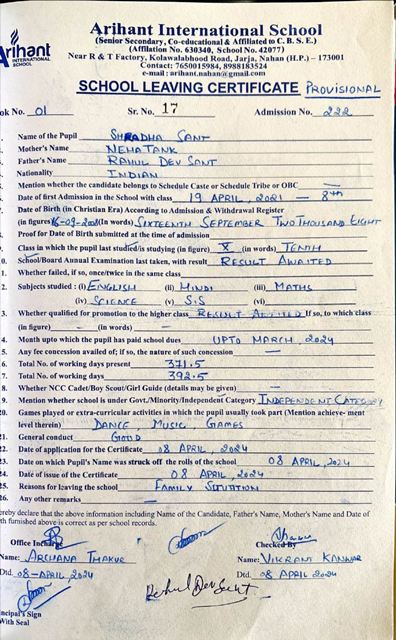 Arihant International School
(Senior Secondary, Co-educational & Affiliated to C. B. S. E.)
(Affilation No. 630340, School No. 42077)
Near R & T Factory, Kolawalabhood Road, Jarja, Nahan (H.P.) – 173001
Contact: 7650015984, 8988183524
e-mail : arihant.nahan@gmail.com
Arihant
INTERNATIONAL
SCHOOL
SCHOOL LEAVING CERTIFICATE PROVISIONAL
ok No. 01 Sr. No. 17 Admission No. 222
Name of the Pupil SHRADHA SANT
Mother's Name NEHA TANK
Father's Name RAHUL DEV SANT
Nationality INDIAN
Mention whether the candidate belongs to Schedule Caste or Schedule Tribe or OBC —
Date of first Admission in the School with class 19 APRIL, 2021 — 8th
Date of Birth (in Christian Era) According to Admission & Withdrawal Register
(in figures) 16-09-2008 (In words) SIXTEENTH SEPTEMBER TWO THOUSAND EIGHT
Proof for Date of Birth submitted at the time of admission
Class in which the pupil studied/is studying (in figure) X (in words) TENTH
0. School/Board Annual Examination last taken, with result RESULT AWAITED
1. Whether failed, if so, once/twice in the same class
2. Subjects studied : (i) ENGLISH (ii) HINDI (iii) MATHS
(iv) SCIENCE (v) S.S (vi)
3. Whether qualified for promotion to the higher class RESULT AWAITED If so, to which class
(in figure) — (in words) —
4. Month upto which the pupil has paid school dues UPTO MARCH, 2024
5. Any fee concession availed of; if so, the nature of such concession —
6. Total No. of working days present 371.5
7. Total No. of working days 392.5
8. Whether NCC Cadet/Boy Scout/Girl Guide (details may be given) —
9. Mention whether school is under Govt./Minority/Independent Category INDEPENDENT CATEGORY
20. Games played or extra-curricular activities in which the pupil usually took part (Mention achieve- ment
level therein) DANCE MUSIC, GAMES
21. General conduct GOOD
22. Date of application for the Certificate 08 APRIL, 2024
23. Date on which Pupil's Name was struck off the rolls of the school 08 APRIL, 2024
24. Date of issue of the Certificate 08 APRIL, 2024
25. Reasons for leaving the school FAMILY SITUATION
26. Any other remarks —
ereby declare that the above information including Name of the Candidate, Father's Name, Mother's Name and Date of
th furnished above is correct as per school records.
Office Incharge Checked By
Name: ARCHANA THAKUR Name: VIKRANT KANWAR
Dtd. 08-APRIL, 2024 Dtd. 08 APRIL 2024
Rahul Dev Sant
incipal's Sign
With Seal